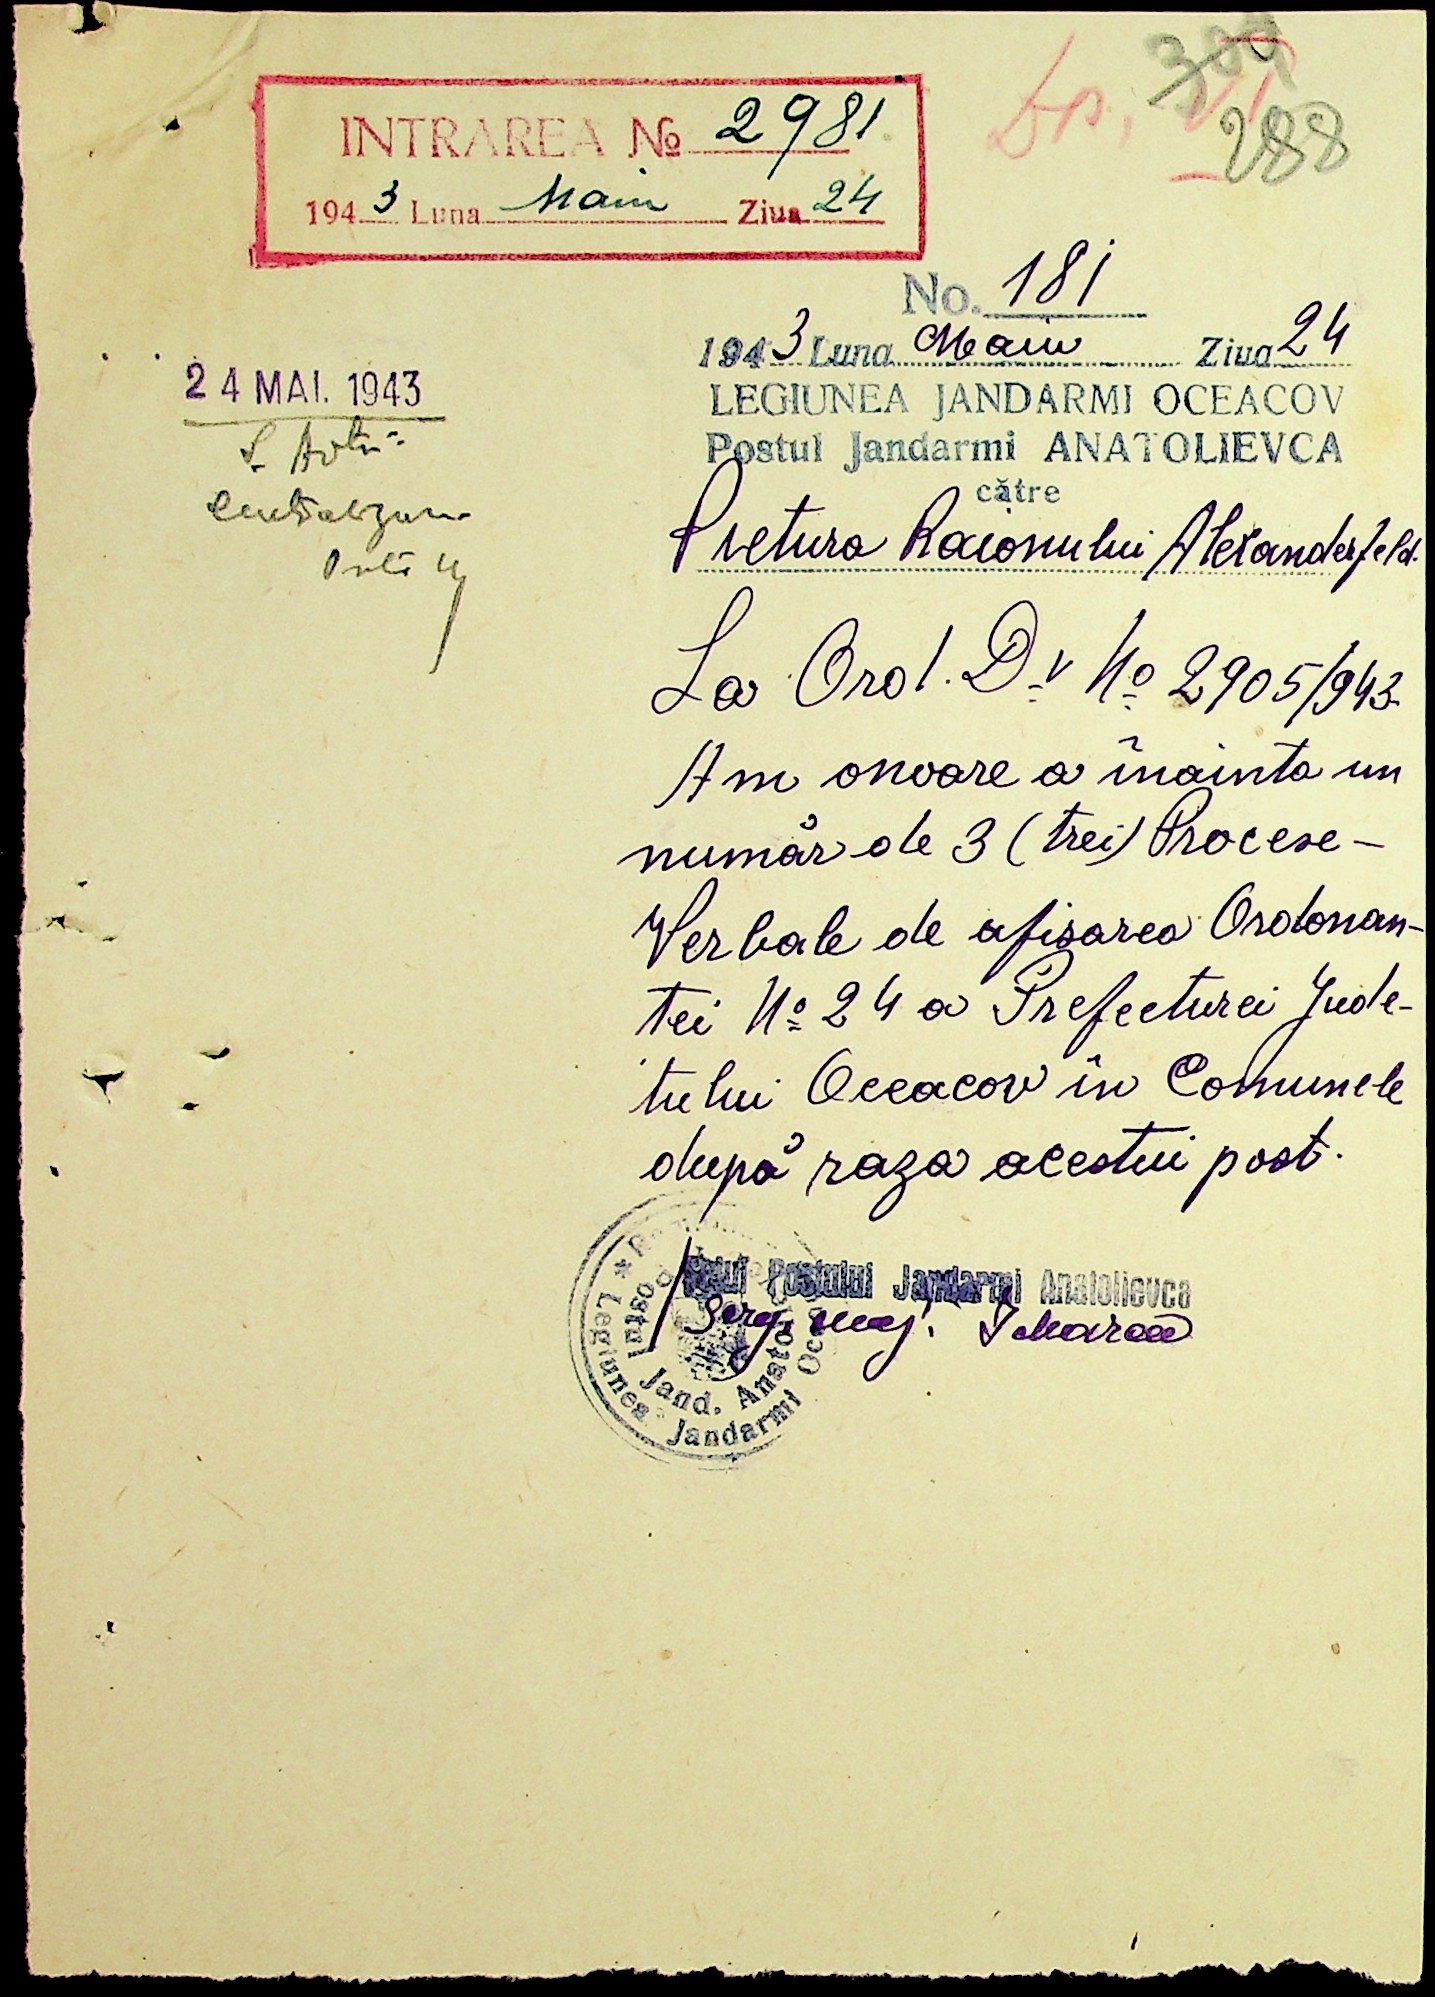 309
288
INTRAREA № 2981
1943 Luna Maiu Ziua 24
No. 181
1943 Luna Maiu Ziua 24
24 MAI. 1943
LEGIUNEA JANDARMI OCEACOV
Postul Jandarmi ANATOLIEVCA
către
Pretura Raionului Alexanderfeld.
La Ord. Dv No 2905/943
Am onoare a înainta un
număr de 3 (trei) Procese-
Verbale de afisarea Ordonan-
tei No 24 a Prefecturei Jude-
tului Oceacov în Comunele
după raza acestui post.
Șeful Postului Jandarmi Anatolievca
Serg. maj.
Legiunea Jandarmi
Postul Jand.